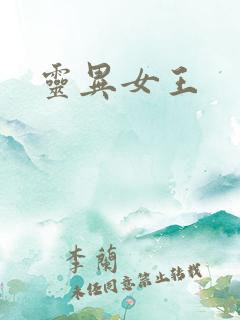 靈異女王
李蘭
未經同意禁止轉載